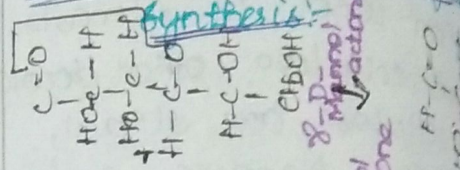 Synthesis:-
C=O
HOC-H
HO-C-H
H-C-O
H-C-OH
CH2OH
γ-D-
Mannol
actone
H-C=O
one